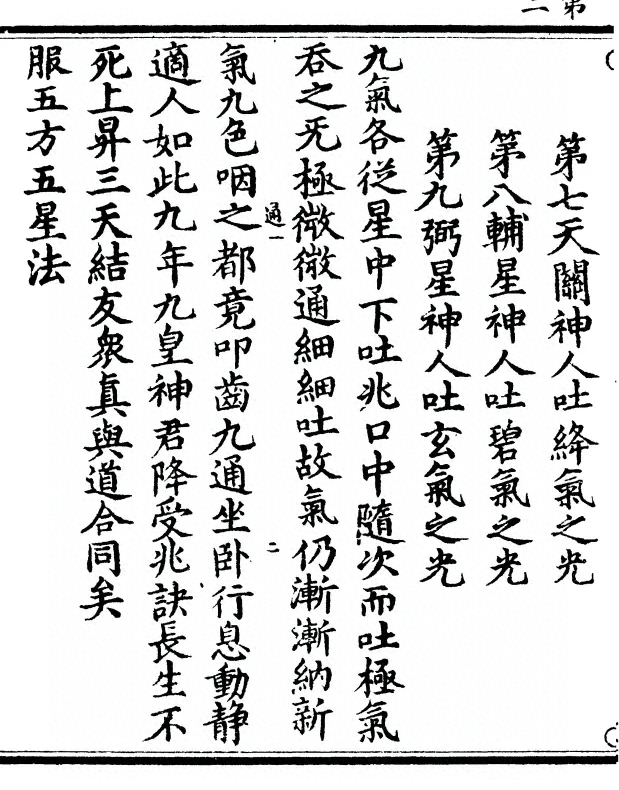 第七天關神人吐絳氣之光
第八輔星神人吐碧氣之光
第九弼星神人吐玄氣之光
九氣各從星中下吐兆口中隨次而吐極氣
吞之旡極微微通細細吐故氣仍漸漸納新
通一 二
氣九色咽之都竟叩齒九通坐卧行息動静
適人如此九年九皇神君降受兆訣長生不
死上昇三天結友衆眞與道合同矣
服五方五星法